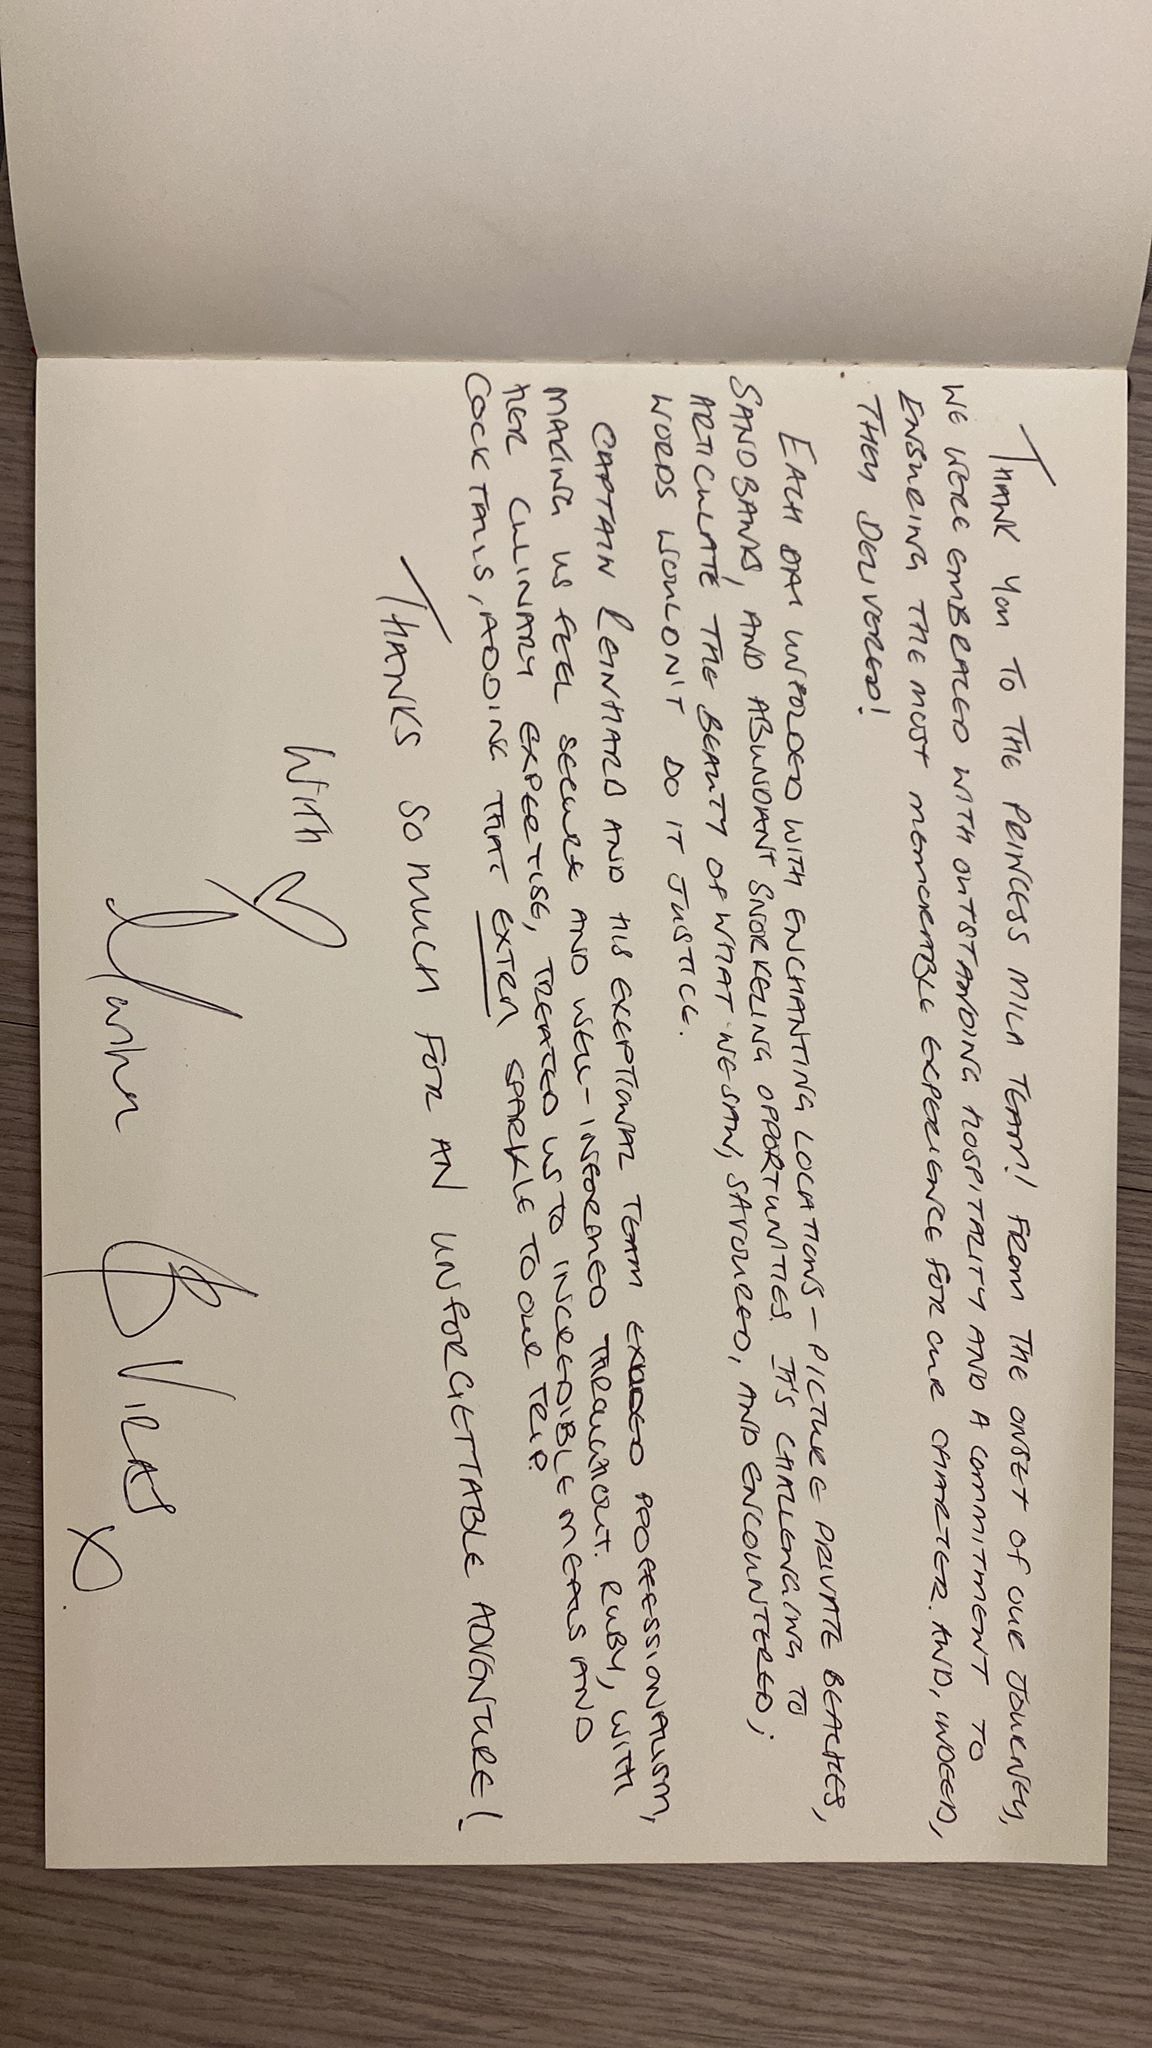 THANK YOU TO THE PRINCESS MILA TEAM! FROM THE ONSET OF OUR JOURNEY,
WE WERE EMBRACED WITH OUTSTANDING HOSPITALITY AND A COMMITMENT TO
ENSURING THE MOST MEMORABLE EXPERIENCE FOR OUR CHARTER. AND, INDEED,
THEY DELIVERED!
EACH DAY UNFOLDED WITH ENCHANTING LOCATIONS - PICTURE PRIVATE BEACHES,
SANDBANKS, AND ABUNDANT SNORKELING OPPORTUNITIES. IT'S CHALLENGING TO
ARTICULATE THE BEAUTY OF WHAT WE SAW, SAVOURED, AND ENCOUNTERED;
WORDS WOULDN'T DO IT JUSTICE.
CAPTAIN REINHARD AND HIS EXEPTIONAL TEAM EXUDED PROFESSIONALISM,
MAKING US FEEL SECURE AND WELL-INFORMED THROUGHOUT. RUBY, WITH
HER CULINARY EXPERTISE, TREATED US TO INCREDIBLE MEALS AND
COCKTAILS, ADDING THAT EXTRA SPARKLE TO OUR TRIP.
THANKS SO MUCH FOR AN UNFORGETTABLE ADVENTURE!
WITH ♡
X